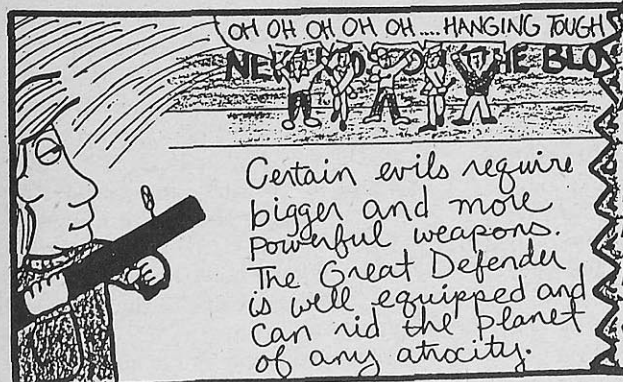 OH OH OH OH OH .... HANGING TOUGH
THE BLO
Certain evils require
bigger and more
powerful weapons.
The Great Defender
is well equipped and
can rid the planet
of any atrocity.